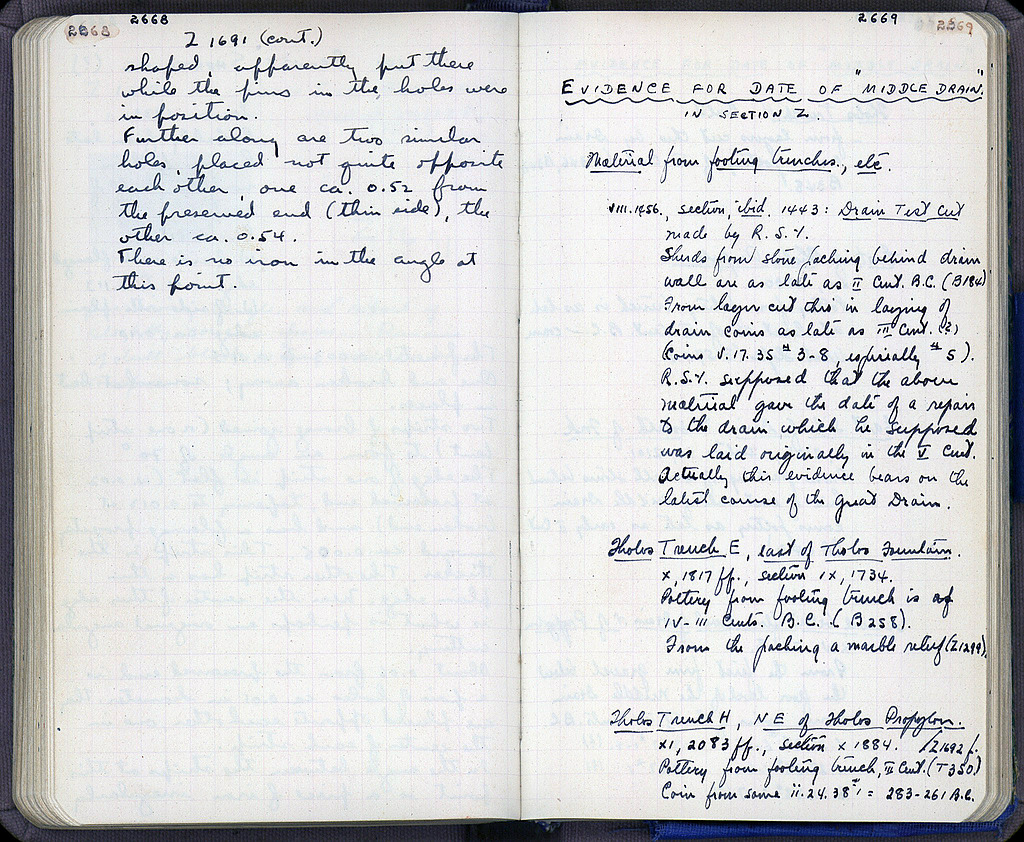 2668
2668
Z 1691 (cont.)
shaped, apparently put there
while the pins in the holes were
in position.
Further along are two similar
holes, placed not quite opposite
each other, one ca. 0.52 from
the preserved end (thin side), the
other ca. 0.54.
There is no iron in the angle at
this point.
2669
2669
EVIDENCE FOR DATE OF "MIDDLE DRAIN"
IN SECTION Z
Material from footing trenches, etc.
VIII.1456., section, ibid. 1443: Drain Test Cut
made by R.S.Y.
Sherds from stone packing behind drain
wall are as late as II Cent. B.C. (B184)
From layer cut thru in laying of
drain coins as late as III Cent. (?)
(Coins V.17.35 # 3-8, especially # 5).
R.S.Y. supposed that the above
material gave the date of a repair
to the drain, which he supposed
was laid originally in the V Cent.
Actually this evidence bears on the
latest course of the Great Drain.
Tholos Trench E, east of Tholos Fountain.
X, 1817 ff., section IX, 1734.
Pottery from footing trench is of
IV-III Cents. B.C. (B258).
From the packing a marble relief (Z1299).
Tholos Trench H, NE of Tholos Propylon.
XI, 2083 ff., section X 1884. /Z1692 f.
Pottery from footing trench, II Cent. (T350)
Coin from same ii.24.38 #1 = 283-261 B.C.